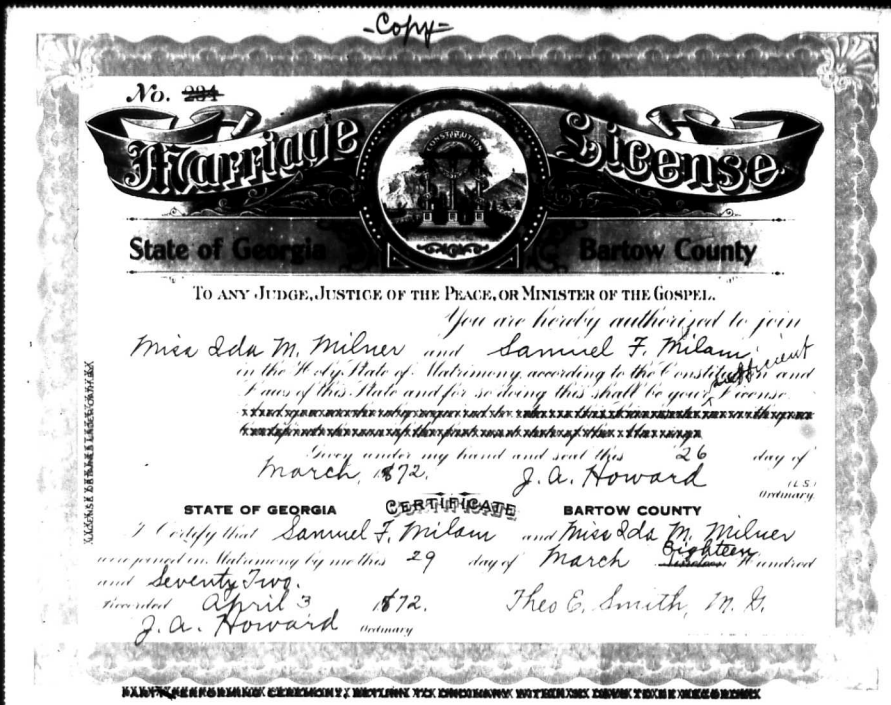 -Copy-
No. 234
Marriage License
CONSTITUTION
State of Georgia Bartow County
TO ANY JUDGE, JUSTICE OF THE PEACE, OR MINISTER OF THE GOSPEL.
You are hereby authorized to join
Miss Ida M. Milner and Samuel F. Milam
in the Holy State of Matrimony, according to the Constitution and
Laws of this State and for so doing this shall be your sufficient License.
Given under my hand and seal this 26 day of
March, 1872. J. A. Howard
(L.S.)
Ordinary.
CERTIFICATE
STATE OF GEORGIA BARTOW COUNTY
I Certify that Samuel F. Milam and Miss Ida M. Milner
were joined in Matrimony by me this 29 day of March Eighteen Hundred
and Seventy Two.
Recorded April 3 1872. Theo E. Smith, M. G.
J. A. Howard Ordinary